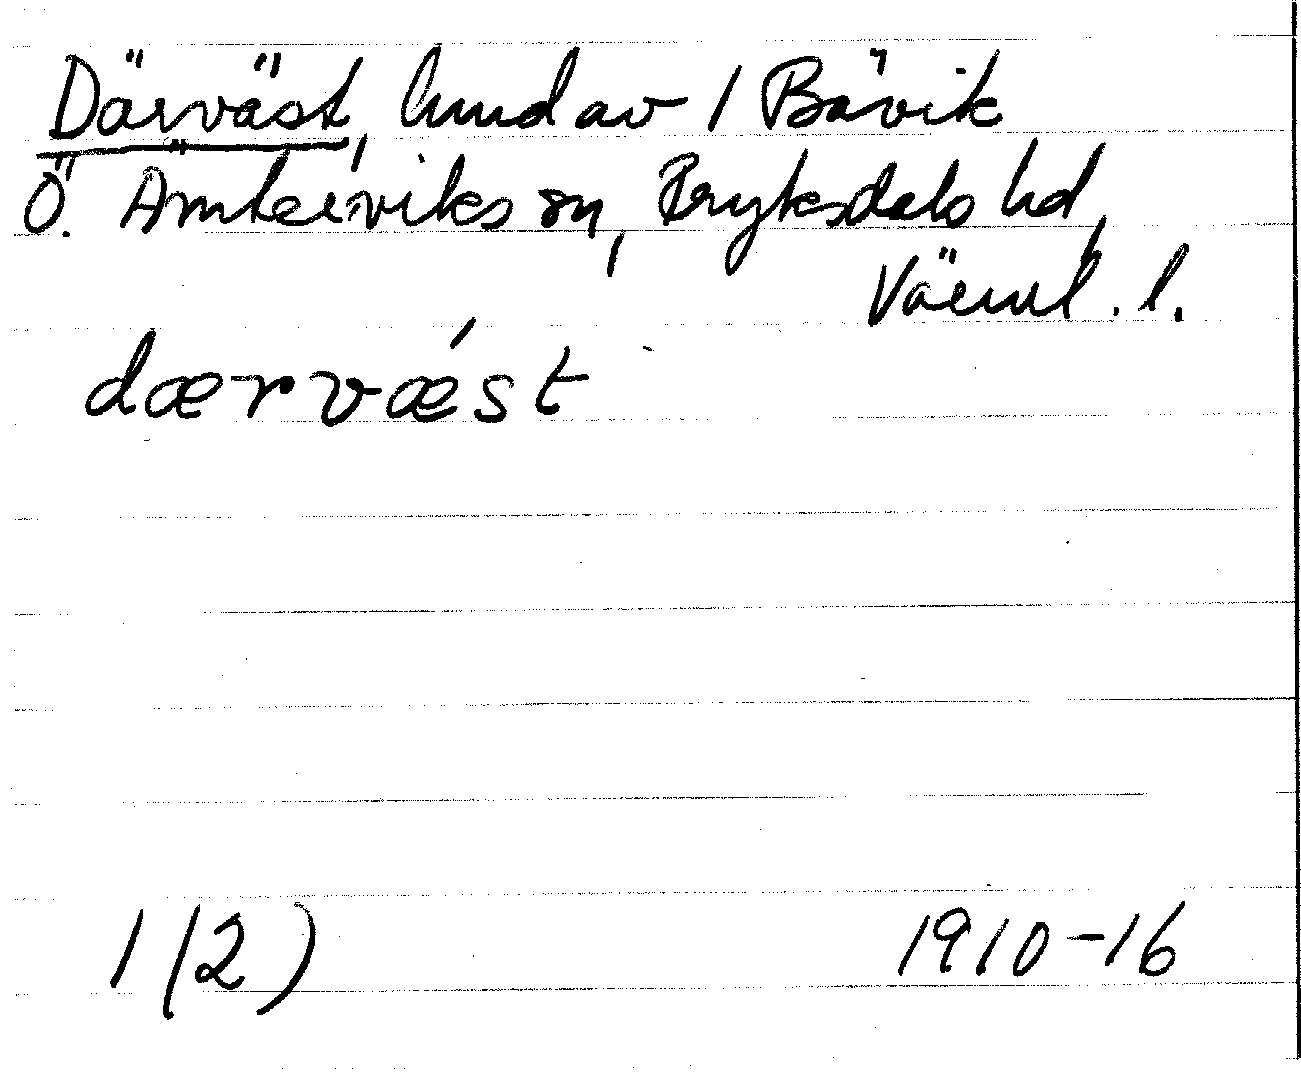 Därväst, hmd av 1 Bävik
Ö. Ämterviks sn, Fryksdals hd,
Värml. l.
dærvǽst
1(2) 1910-16